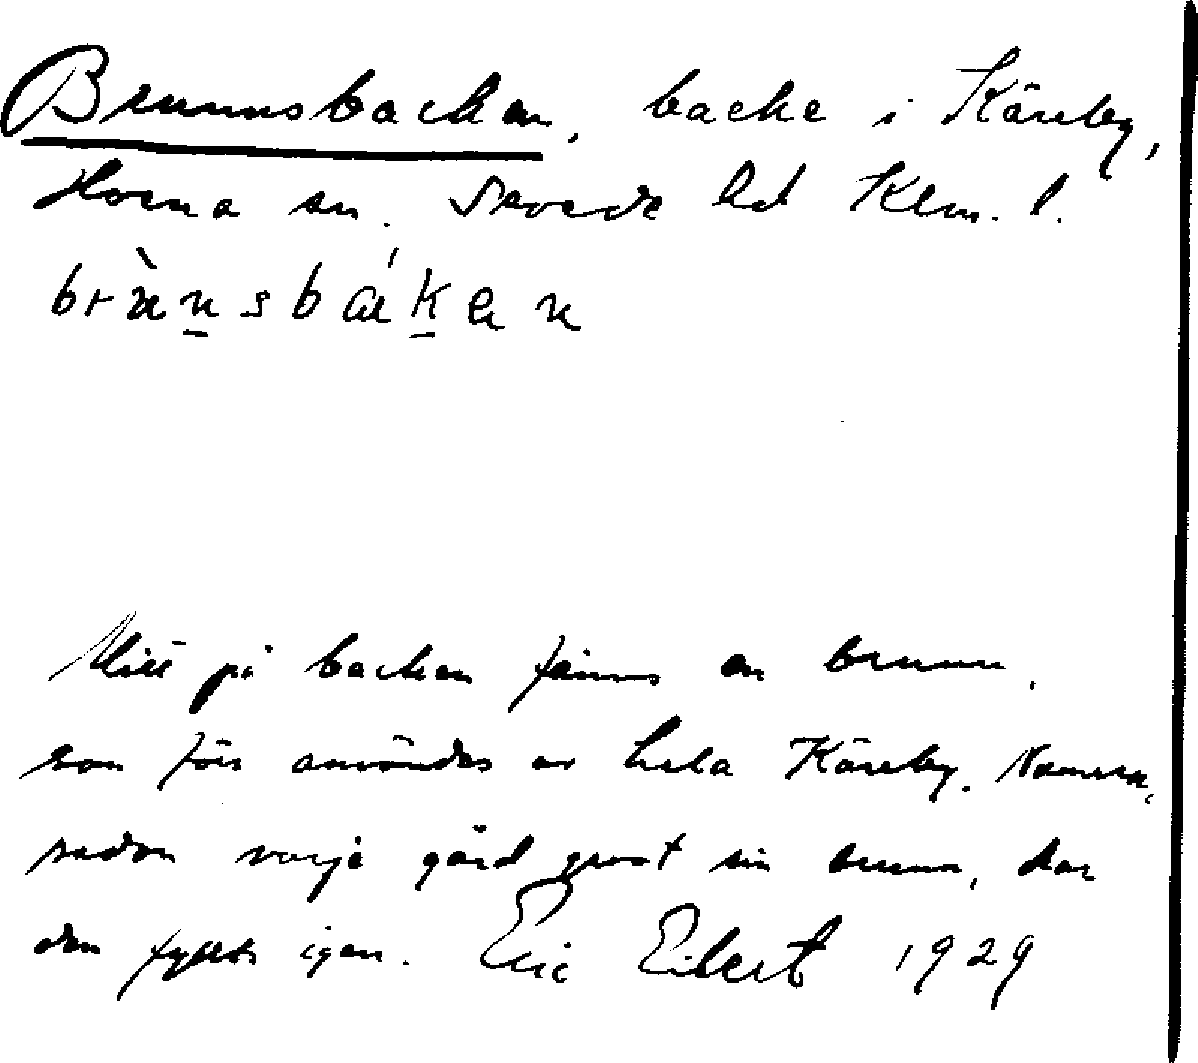 Brunnsbacken, backe i Käreby,
Horna sn. Sevede hd Klm. l.
brùnsbáken
Mitt på backen fanns en brunn,
som förr användes av hela Käreby. Numera,
sedan varje gård grävt sin brunn, har
den fyllts igen. Eric Eilert 1929